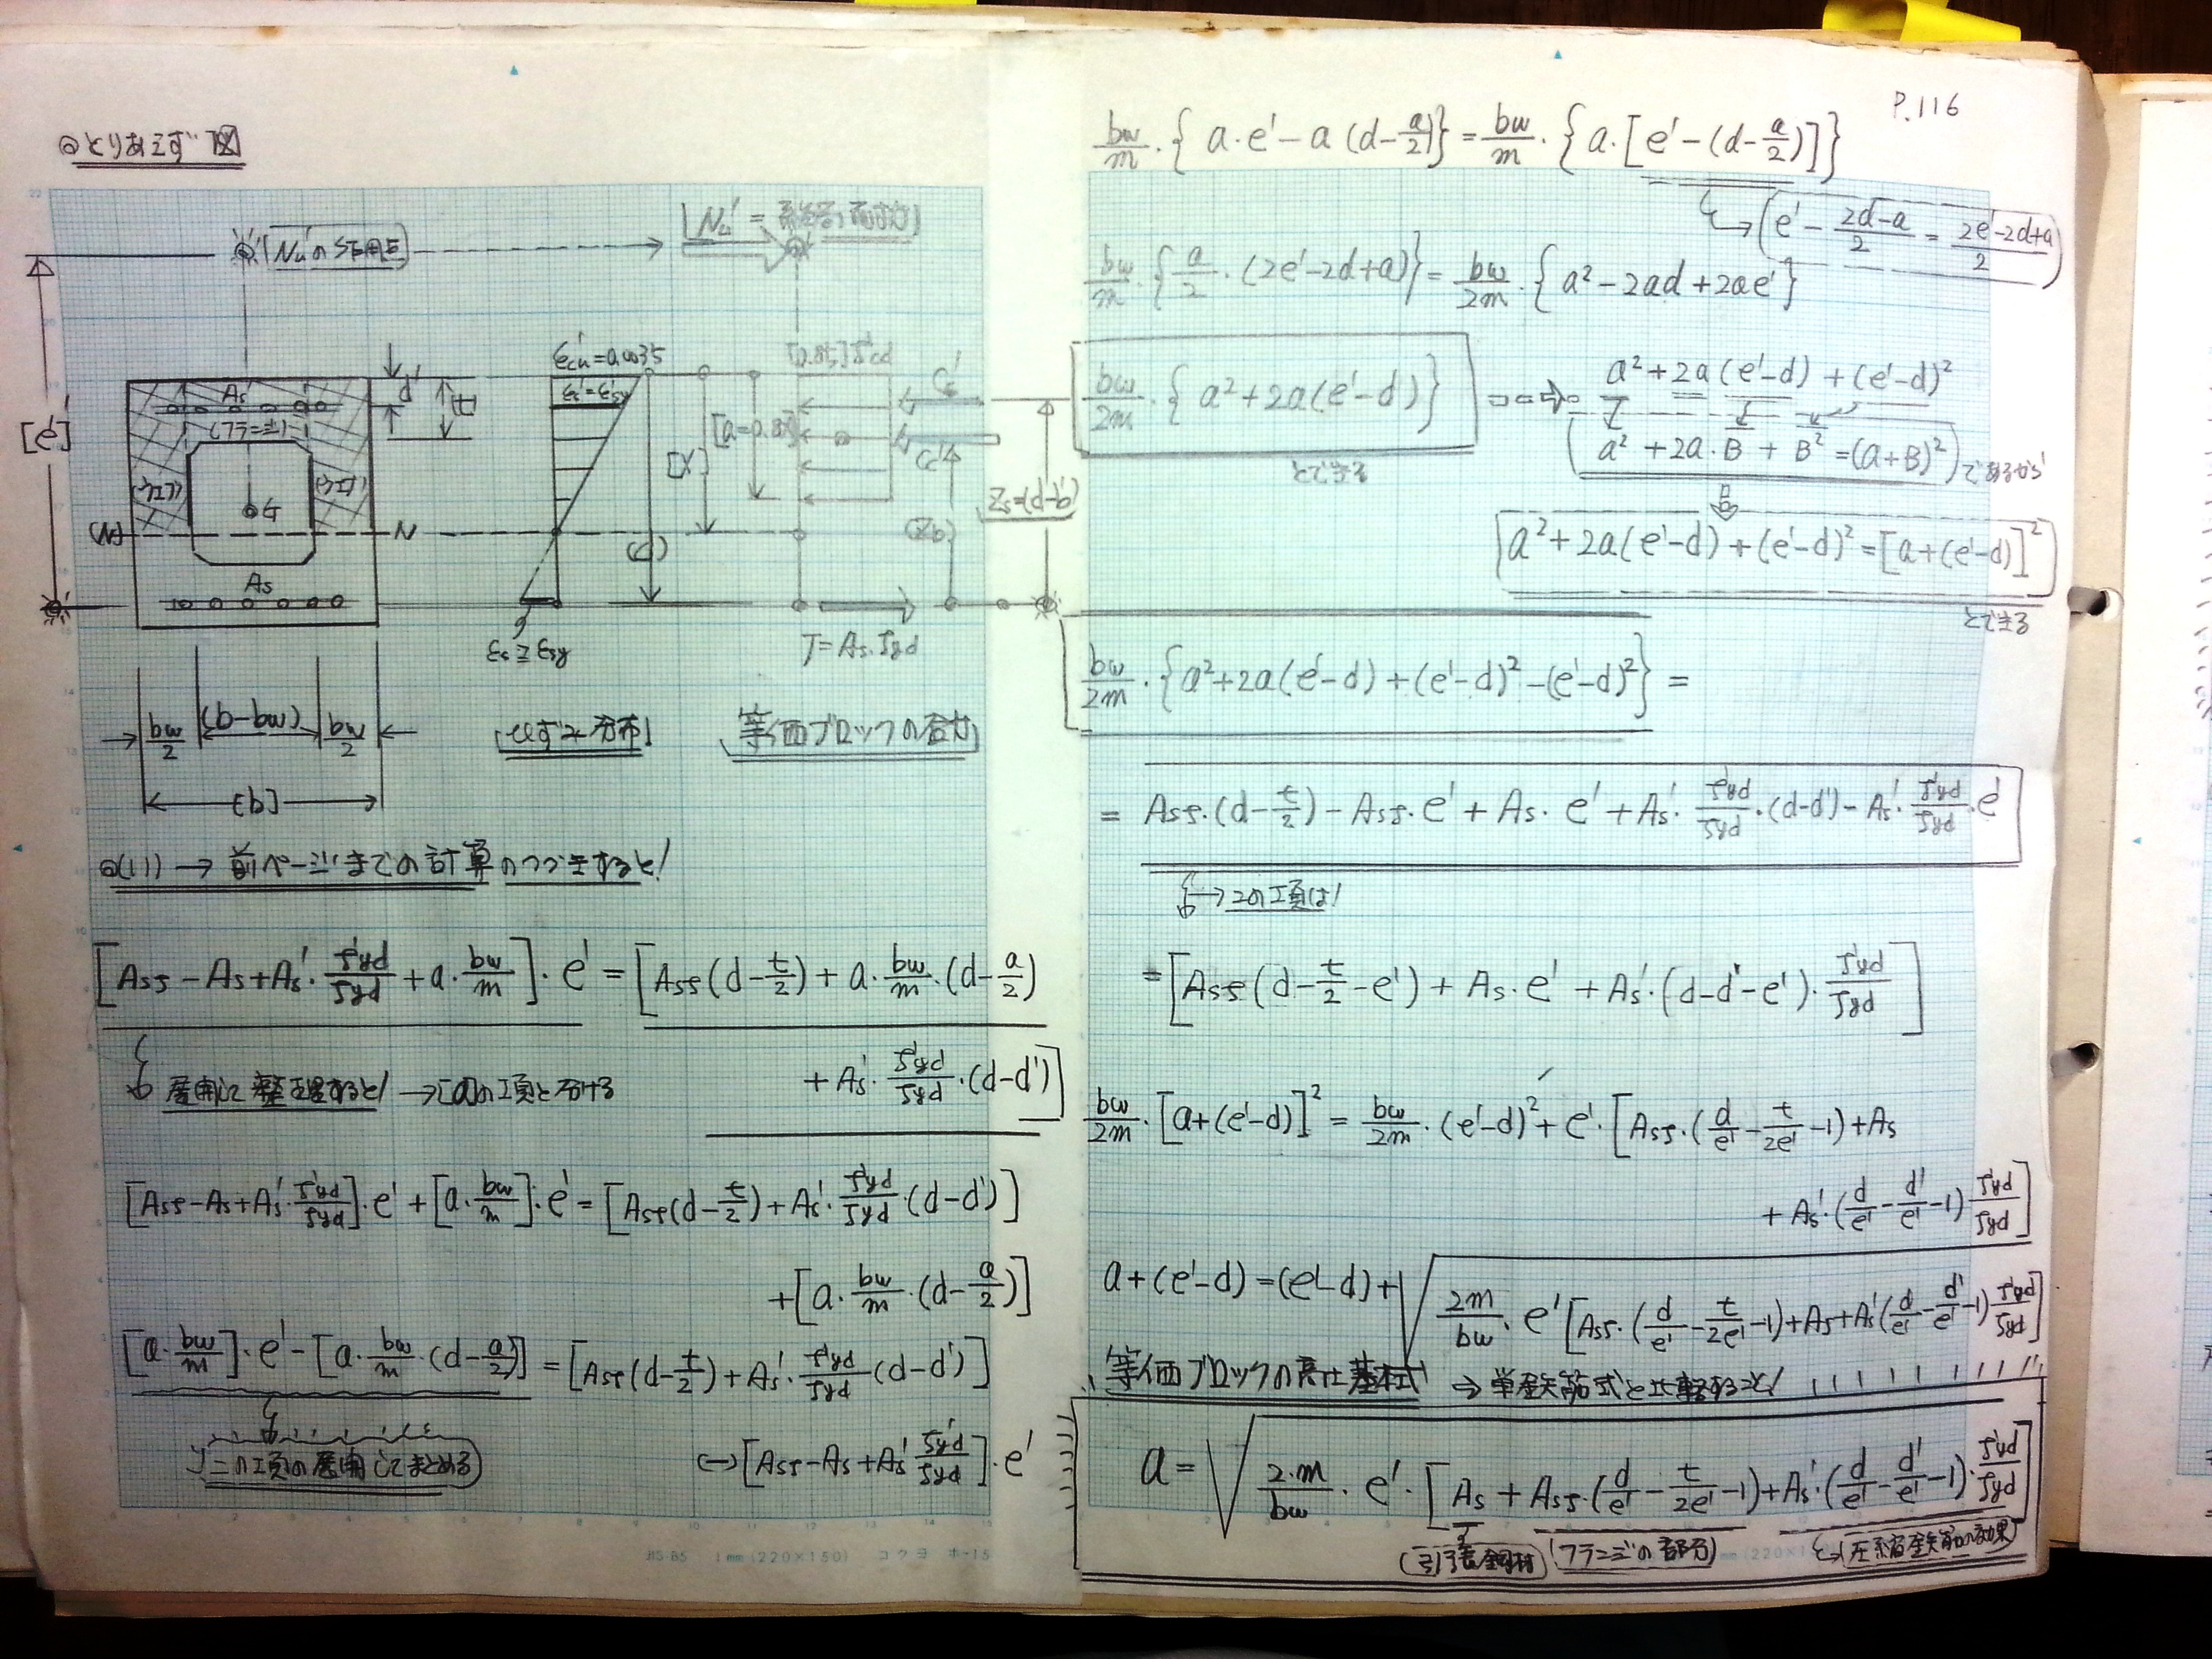 ◎とりあえず図
[Nu'の作用位]
[Nu' = 系
εcu' = 0.0035
[0.85]f'cd
As'
d'
t
εs' = εsy'
Cs'
(フランジ)
[a=0.8x]
[e']
[x]
Cc'
(ウェブ)
(ウェブ)
G
Zs=(d-d')
(N)
N
(d)
(Zb)
As
εs≧εsy
T=As・fyd
bw/2
(b-bw)
bw/2
[b]
[ひずみ分布]
[等価ブロックの合力]
◎(11) → 前ページまでの計算のつづきすると!
[Asf - As + As'・f'yd/fyd + a・bw/m]・e' = [Asf(d-t/2) + a・bw/m・(d-a/2)
+ As'・f'yd/fyd・(d-d')]
展開して整理すると! →[a]の項と分ける
[Asf-As+As'・f'yd/fyd]・e' + [a・bw/m]・e' = [Asf(d-t/2)+As'・f'yd/fyd・(d-d')]
+[a・bw/m・(d-a/2)]
[a・bw/m]・e' - [a・bw/m・(d-a/2)] = [Asf(d-t/2)+As'・f'yd/fyd(d-d')]
この項の展開してまとめる
(-)[Asf-As+As' f'yd/fyd]・e'
P.116
bw/m・{a・e'-a(d-a/2)} = bw/m・{a・[e'-(d-a/2)]}
→(e' - (2d-a)/2 = (2e'-2d+a)/2)
bw/m・{a/2・(2e'-2d+a)} = bw/2m・{a²-2ad+2ae'}
bw/2m・{a²+2a(e'-d)}
a²+2a(e'-d)+(e'-d)²
(a²+2a・B+B²=(a+B)²)であるから
とできる
a²+2a(e'-d)+(e'-d)²=[a+(e'-d)]²
とできる
bw/2m・{a²+2a(e'-d)+(e'-d)²-(e'-d)²} =
= Asf・(d-t/2) - Asf・e' + As・e' + As'・f'yd/fyd・(d-d') - As'・f'yd/fyd・e'
→この項は!
=[Asf(d-t/2-e') + As・e' + As'・(d-d'-e')・f'yd/fyd]
bw/2m・[a+(e'-d)]² = bw/2m・(e'-d)² + e'・[Asf・(d/e'-t/2e'-1)+As
+ As'・(d/e'-d'/e'-1) f'yd/fyd]
a+(e'-d)=(e'-d)+√(2m/bw・e'[Asf・(d/e'-t/2e'-1)+As+As'(d/e'-d'/e'-1)f'yd/fyd]
等価ブロックの高さ基本式 ⇒ 単鉄筋式と比較すると!
a=√(2・m/bw・e'・[As+Asf・(d/e'-t/2e'-1)+As'・(d/e'-d'/e'-1)・f'yd/fyd]
(引張鋼材)
(フランジの部分)
→(圧縮鉄筋の効果)
JIS B5 1mm(220×150) コクヨ ホ-15
mm(220×150)